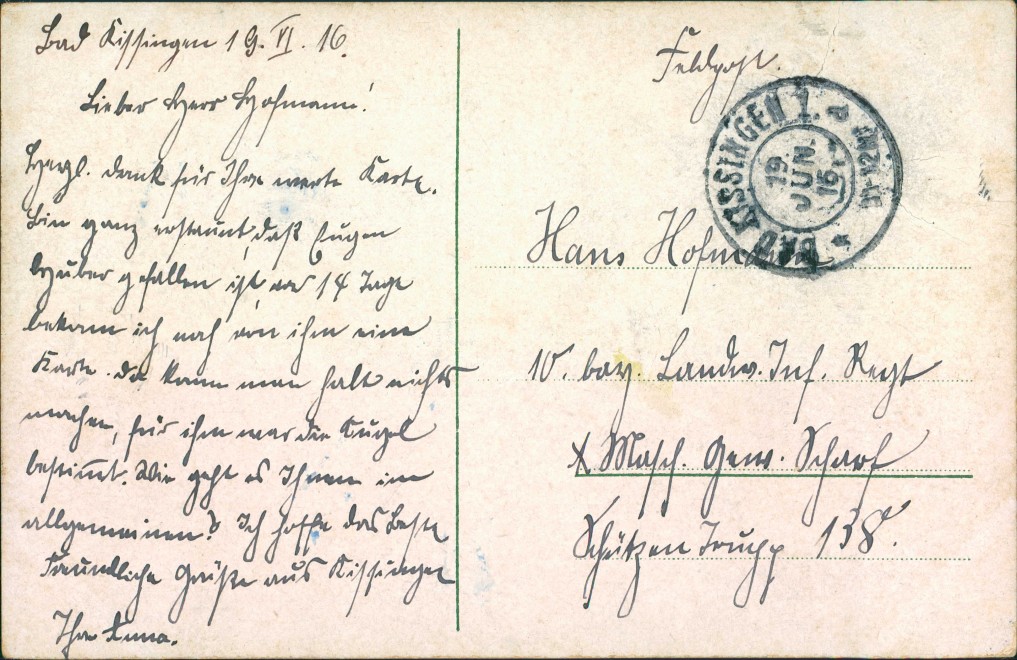 Bad Kissingen 19. VI. 16.
Lieber Herr Hofmann!
Herzl. Dank für Ihre werte Karte.
Bin ganz erstaunt, daß Eugen
Huber gefallen ist, vor 14 Tage
bekam ich noch von ihm eine
Karte. Da kann man halt nichts
machen, für ihn war die Kugel
bestim̅t. Wie geht es Ihnen im
allgemeinen? Ich hoffe das Beste
Freundliche Grüße aus Kissingen
Ihre Anna.
Feldpost.
BAD KISSINGEN 1.
19 JUN. 16
Hans Hofmann
10. bay. Landw. Inf. Regt
Masch. Gew. Scharf
Schützen Trupp 138.